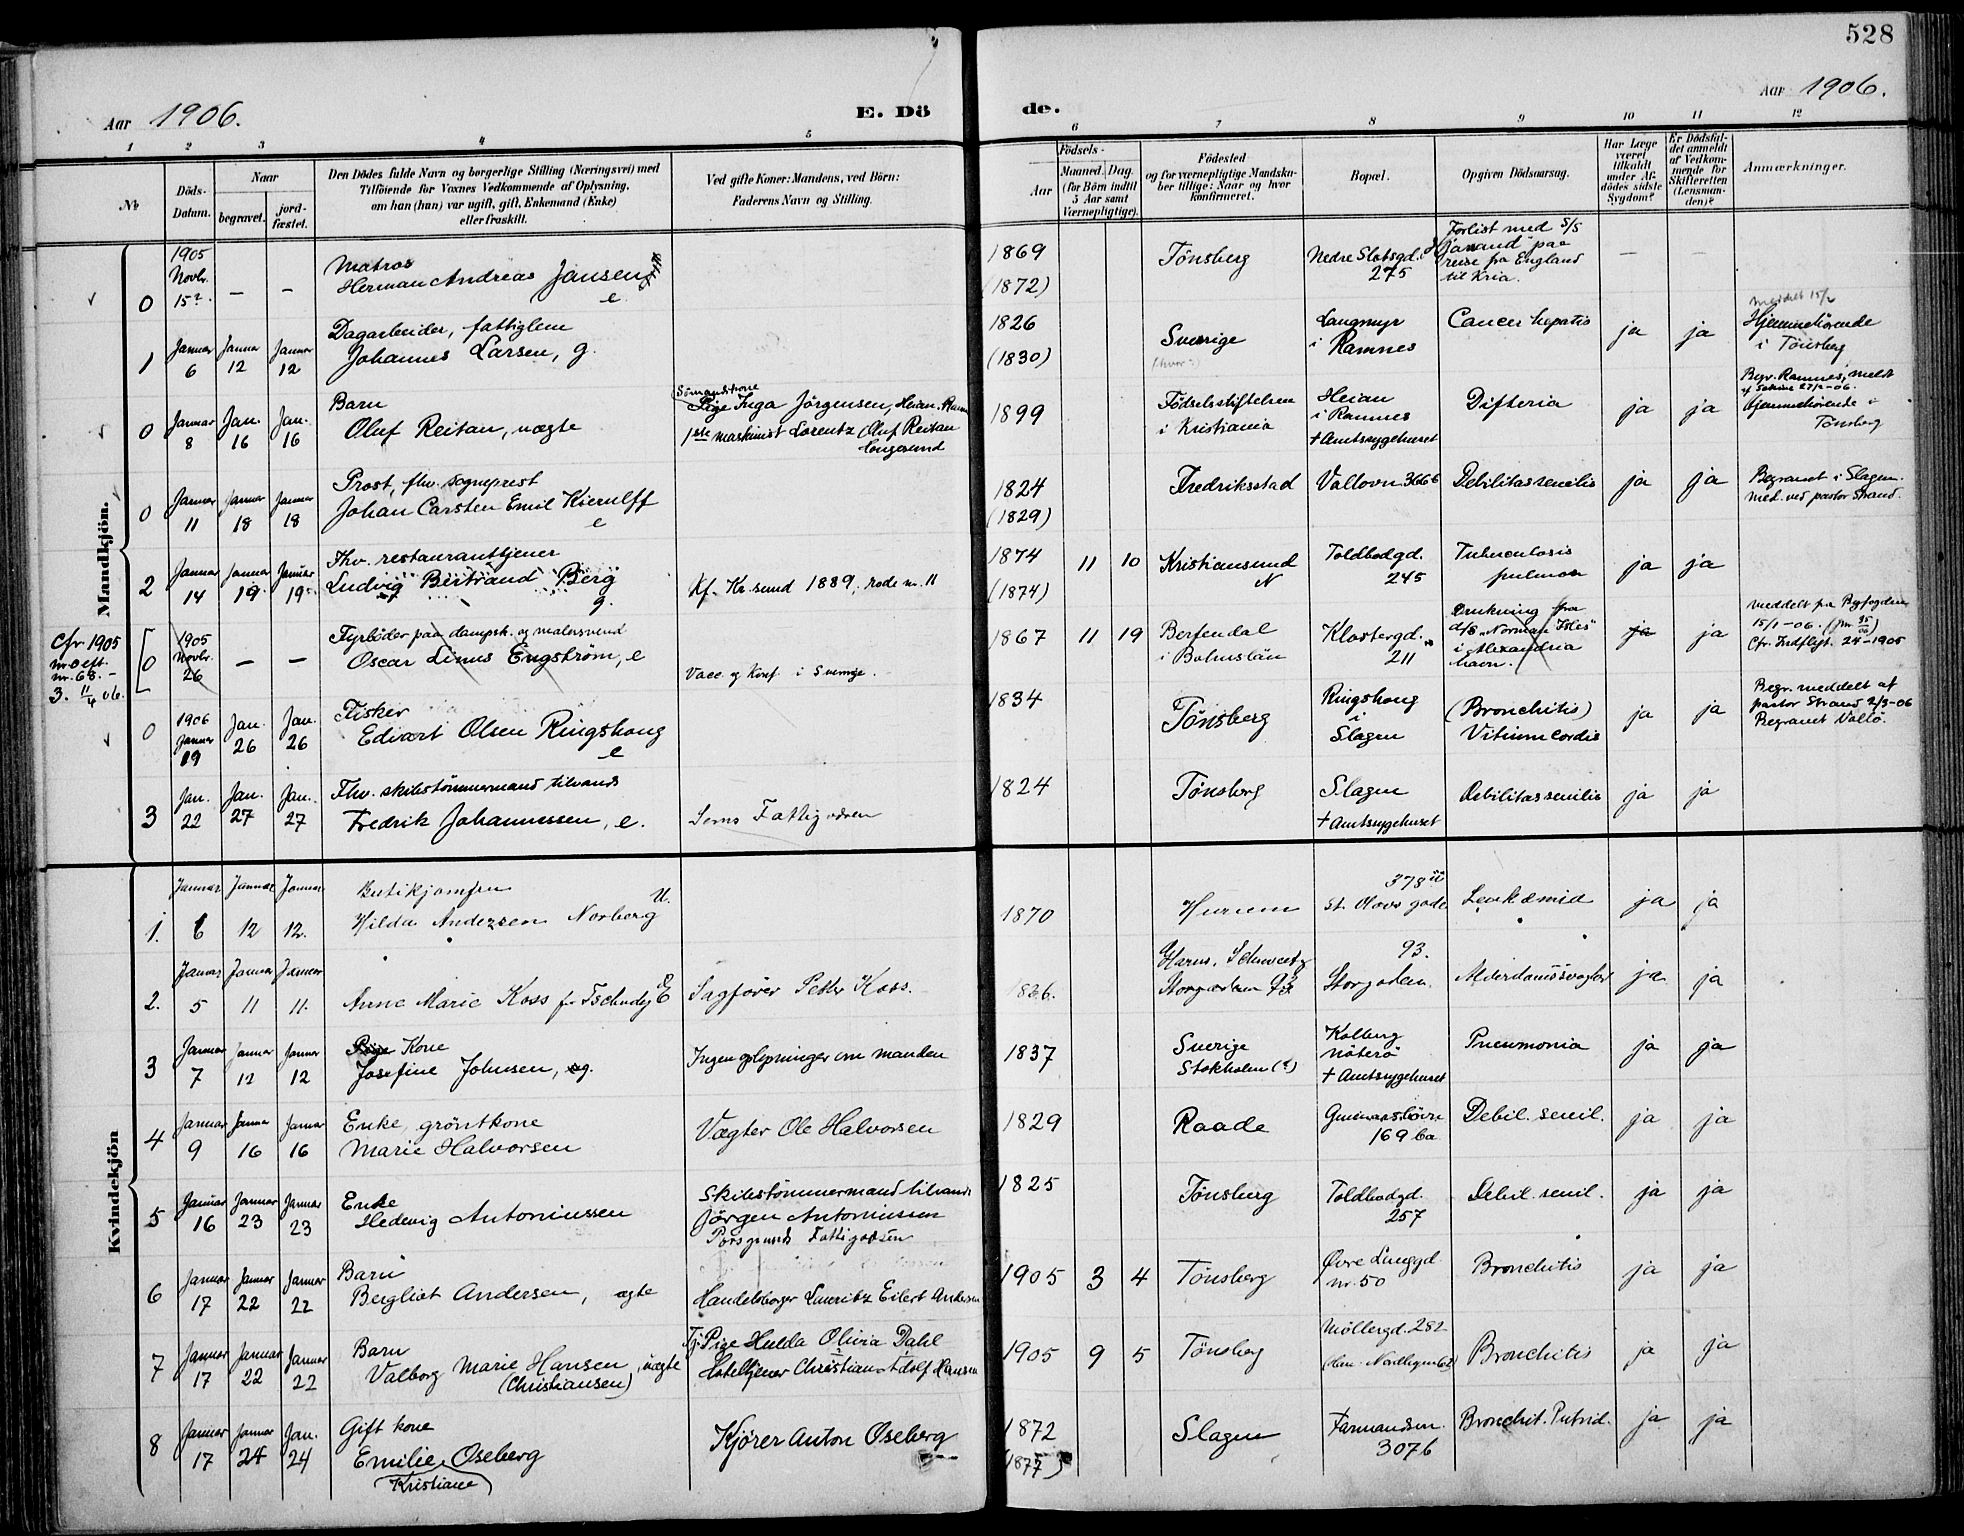 528
Aar 1906.
E. Dö
de.
Aar 1906.
1 2 3 4 5 6 7 8 9 10 11 12
No
Döds-Datum.
Naar
begravet.
jord-fæstet.
Den Dödes fulde Navn og borgerlige Stilling (Næringsvei) med
Tilföiende for Voxnes Vedkommende af Oplysning,
om han (hun) var ugift, gift, Enkemand (Enke)
eller fraskilt.
Ved gifte Koner: Mandens, ved Börn:
Faderens Navn og Stilling.
Födsels-
Aar
Maaned. Dag.
(for Börn indtil
5 Aar samt
Værnepligtige).
Födested
og for værnepligtige Mandska-
ber tillige: Naar og hvor
konfirmeret.
Bopæl.
Opgiven Dödsaarsag.
Har Læge
været
tilkaldt
under Af-
dödes sidste
Sygdom?
Er Dödsfal-
det anmeldt
af Vedkom-
mende for
Skifteretten
(Lensman-
den)?
Anmærkninger.
Mandkjön.
0
1905
Novbr.
15?
– –
Matros
Herman Andreas Jansen
e.
1869
(1872)
Tönsberg
Nedre Slotsgd.
275
Forlist med S/S
paa
reise fra England
til Kria.
– –
1
Januar
6
Januar
12
Januar
12
Dagarbeider, fattiglem
Johannes Larsen, g.
1826
(1830)
Sverige
(hvor?)
Langmyr
i Ramnes
Cancer hepatis
ja
ja
meddelt 15/2
Hjemmehörende
i Tönsberg
0
Januar
8
Jan.
16
Jan.
16
Barn
Oluf Reitan, uægte
Sömandskone
Pige Inga Jörgensen, Heian, Ramn
1ste maskinist Lorentz Oluf Reitan
1899
Födselsstiftelsen
i Kristiania
Heian
i Ramnes
+ Amtssygehuset
Difteria
ja
ja
Begr. Ramnes, meldt
27/2-06.
Hjemmehörende i
Tönsberg
0
Januar
11
Januar
18
Januar
18
Prost, fhv. sogneprest
Johan Carsten Emil Kierulff
e
1824
(1829)
Fredriksstad
Vallovn. 366 b
Debilitas senilis
ja
ja
Begravet i Slagen.
Med. ved pastor Strand.
2
Januar
14
Januar
19
Januar
19
Fhv. restauranttjener
Ludvig Bertrand Berg
g.
Kf. Kr.sund 1889, rode nr. 11
1874
(1874)
11
10
Kristiansund
N
Toldbodgd.
245
Tuberculosis
pulmon
ja
ja
Cfr. 1905
nr. 0 eft.
nr. 68. –
3. 11/4 06.
0
1905
Novbr.
26
– –
Fyrböder paa dampsk. og malersvend
Oscar Linus Engström, e
Vacc. og Konf. i Sverige.
1867
11
19
Berfendal
i Bohuslän
Klostergd.
211
Drukning fra
d/s "Norman Isles"
i Alexandria
havn.
ja
ja
Meddelt fra Byfogden
15/1-06.
Cfr. Indflyt. 24-1905
0
1906
Januar
19
Jan.
26
Jan.
26
Fisker
Edvart Olsen Ringshaug
e
1834
Tönsberg
Ringshaug
i
Slagen
(Bronchitis)
Vitium cordis
ja
ja
Begr. meddelt af
pastor Strand 2/3-06
Begravet Vallö.
3
Jan.
22
Jan.
27
Jan.
27
Fhv. skibstömmermand tilvands
Fredrik Johannessen, e.
Sems Fattigvæsen
1824
Tönsberg
Slagen
+ Amtssygehuset
Debilitas senilis
ja
ja
Kvindekjön
1.
Januar
6
Januar
12
Januar
12.
Butikjomfru
U.
Hilda Andersen Norberg
1870
Hurum
378
St. Olavs gade
Leukæmid
ja
ja
2.
Januar
5
Januar
11
Januar
11.
Anna Marie Koss f. Tschudy E
Sagförer Petter Koss.
1826.
Glarus, Schweitz
93.
Storgaden.
Alderdomssvaghed
ja
ja
3
Januar
7
Januar
12
Januar
12
Kone
Josefine Johnsen, g.
Ingen oplysninger om manden
1837
Sverige
Stokholm (?)
Kolberg
Nöterö
+ Amtssygehuset
Pneumonia
ja
ja
4
Januar
9
Januar
16
Januar
16
Enke, gröntkone
Marie Halvorsen
Vægter Ole Halvorsen
1829
Raade
169 ba
Debil. senil.
ja
ja
5
Januar
16
Januar
23
Januar
23
Enke
Hedevig Antoniussen
Skibstömmermand tilvands
Jörgen Antoniussen
Porsgrunds Fattigvæsen
1825
Tönsberg
Toldbodgd.
257
Debil. senil.
ja
ja
6
Januar
17
Januar
22
Januar
22
Barn
Bergliot Andersen, ægte
Handelsborger Lauritz Eilert Andersen
1905
3
4
Tönsberg
Övre Langgd
nr. 50
Bronchitis
ja
ja
7
Januar
17
Januar
22
Januar
22
Barn
Valborg Marie Hansen, uægte
(Christiansen)
Tj. Pige Hulda Olivia Dahl
Hoteltjener Christian Adolf Hansen
1905
9
5
Tönsberg
Möllergd. 282
Bronchitis
ja
ja
8
Januar
17
Januar
24
Jan.
24
Gift kone
Emilie Oseberg
(Kristiane)
Kjörer Anton Oseberg
1872
(1877)
Slagen
Farmandsvn.
307 b
Bronchit. Putrid.
ja
ja